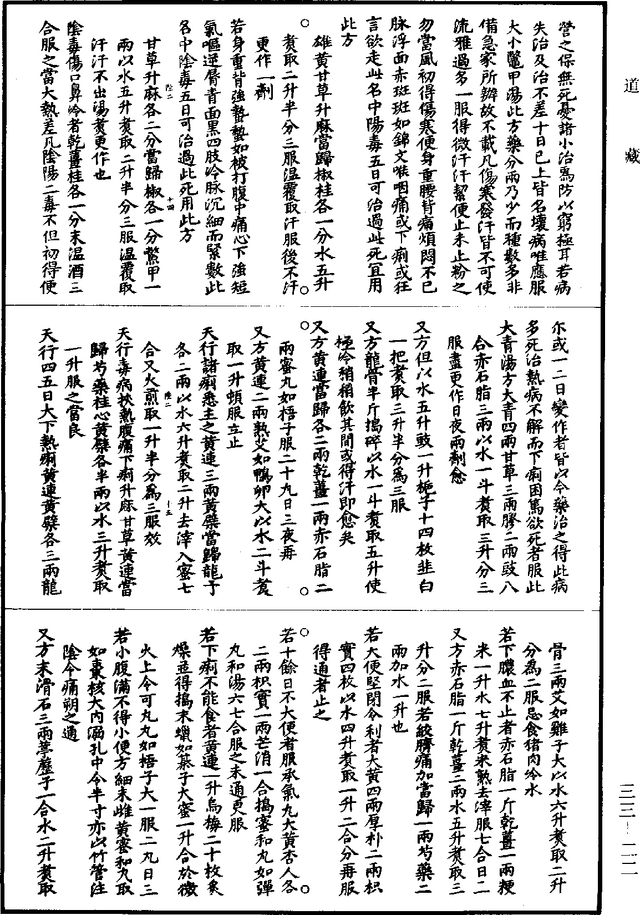 道藏
營之保無死憂諸小治爲防以窮極耳若病
失治及治不差十日已上皆名壞病唯應服
大小鼈甲湯此方藥分兩乃少而種數多非
備急家所辦故不載凡傷寒發汗皆不可使
流離過多一服得微汗汗絜便止未止粉之
勿當風初得傷寒便身重腰背痛煩悶不已
脉浮面赤斑斑如錦文喉咽痛或下痢或狂
言欲走此名中陽毒五日可治過此死宜用
此方
雄黃甘草升麻當歸椒桂各一分水五升
煑取二升半分三服温覆取汗服後不汗
更作一劑
若身重背強蟄蟄如被打腹中痛心下強短
氣嘔逆脣青面黑四肢冷脉沉細而緊數此
名中陰毒五日可治過此死用此方
甘草升麻各二分當歸椒各一分鱉甲一
兩以水五升煑取二升半分三服温覆取
汗汗不出湯煑更作也
陰毒傷口鼻冷者乾薑桂各一分末温酒三
合服之當大熱差凡陰陽二毒不但初得便
尒或一二日變作者皆以今藥治之得此病
多死治熱病不解而下痢困篤欲死者服此
大青湯方大青四兩甘草三兩膠二兩豉八
合赤石脂三兩以水一斗煑取三升分三
服盡更作日夜兩劑愈
又方但以水五升豉一升梔子十四枚韭白
一把煑取三升半分爲三服
又方龍骨半斤搗碎以水一斗煑取五升使
極冷稍稍飲其間或得汗即愈矣
又方黃連當歸各二兩乾薑一兩赤石脂二
兩蜜丸如梧子服二十九日三夜再
又方黃連二兩熟艾如鴨卵大以水二斗煑
取一升頓服立止
天行諸痢悉主之黃連三兩黃蘗當歸龍子
各二兩以水六升煑取二升去滓入蜜七
合又火煎取一升半分爲三服效
天行毒病挾熱腹痛下痢升麻甘草黃連當
歸芍藥桂心黃蘗各半兩以水三升煑取
一升服之當良
天行四五日大下熱痢黃連黃蘗各三兩龍
骨三兩艾如雞子大以水六升煑取二升
分爲二服忌食猪肉冷水
若下膿血不止者赤石脂一斤乾薑一兩粳
米一升水七升煑米熟去滓服七合日二
又方赤石脂一斤乾薑二兩水五升煑取三
升分二服若絞臍痛加當歸一兩芍藥二
兩加水一升也
若大便堅閉令利者大黃四兩厚朴二兩枳
實四枚以水四升煑取一升二合分再服
得通者止之
若十餘日不大便者服承氣丸大黃杏人各
二兩枳實一兩芒消一合搗蜜和丸如彈
丸和湯六七合服之未通更服
若下痢不能食者黃連一升烏梅二十枚炙
燥並得搗末蠟如棊子大蜜一升合於微
火上令可丸丸如梧子大一服二丸日三
若小腹滿不得小便方細末雌黃蜜和丸取
如棗核大内溺孔中令半寸亦以竹管注
陰令痛朔之通
又方末滑石三兩葶藶子一合水二升煑取
三三-二二